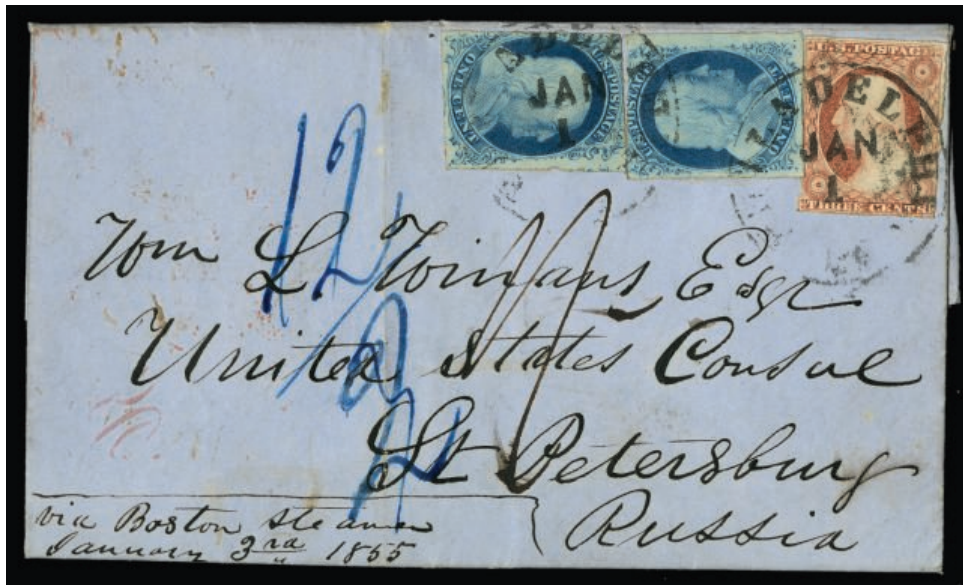 U.S. POSTAGE
ONE CENT
U.S. POSTAGE
U.S. POSTAGE
THREE CENTS
ADEL
JAN
1
LADELPH
JAN
1
12
Wm L Winans Esqr
United States Consul
St Petersburg
Russia
via Boston steamer
January 3rd 1855